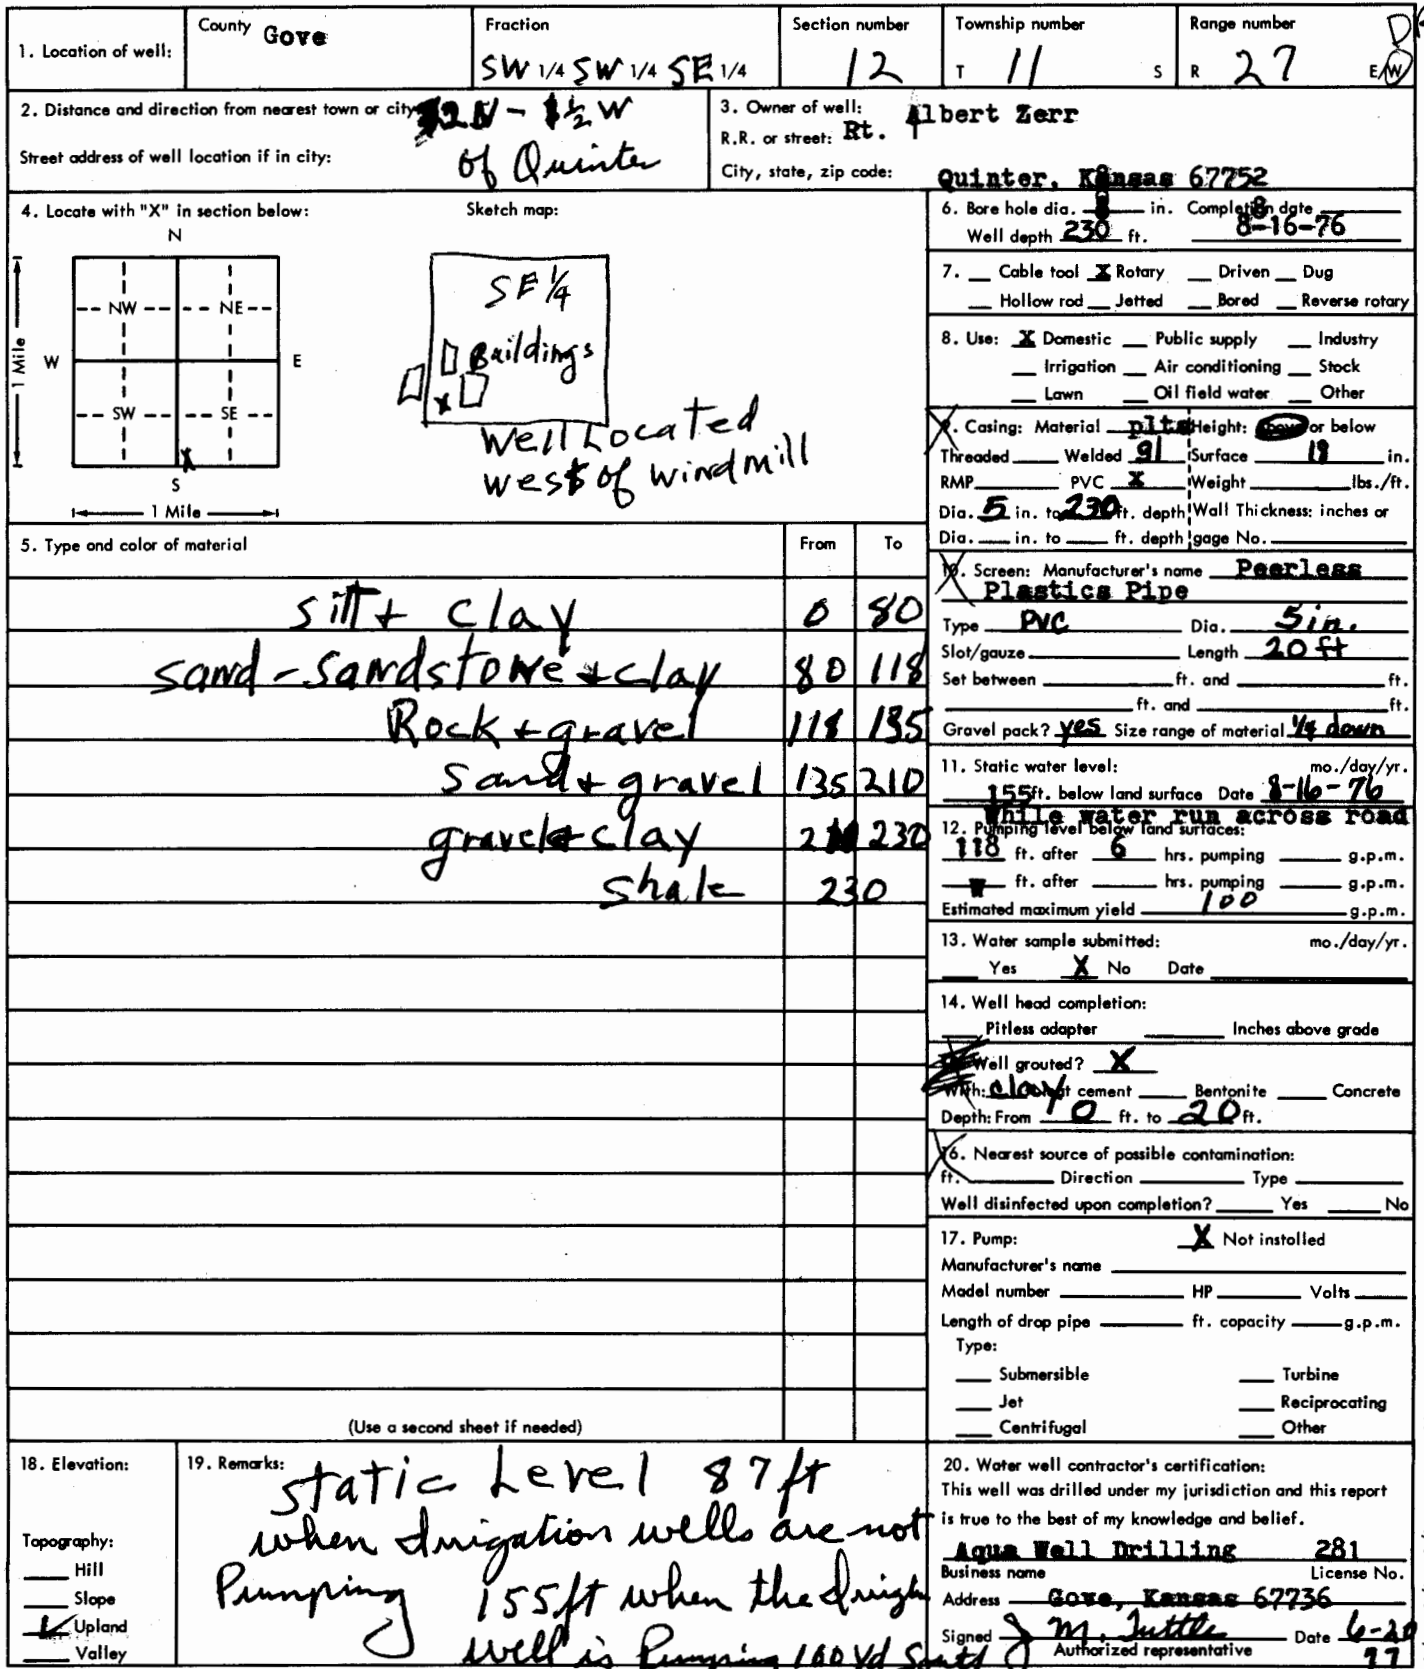 1. Location of well:
County Gove
Fraction
SW 1/4 SW 1/4 SE 1/4
Section number
12
Township number
T 11 S
Range number
R 27 E/W
2. Distance and direction from nearest town or city:
2N - 1/2 W
Street address of well location if in city:
of Quinter
3. Owner of well: Albert Zerr
R.R. or street: Rt. 1
City, state, zip code: Quinter, Kansas 67752
4. Locate with "X" in section below:
Sketch map:
N
NW NE
W E
SW SE
X
S
1 Mile
1 Mile
SE 1/4
Buildings
X
Well Located
west of windmill
5. Type and color of material From To
silt + clay 0 80
sand-sandstone + clay 80 118
Rock + gravel 118 135
Sand + gravel 135 210
gravel + clay 230
Shale 230
(Use a second sheet if needed)
6. Bore hole dia. 8 in. Completion date
Well depth 230 ft. 8-16-76
7. __ Cable tool X Rotary __ Driven __ Dug
__ Hollow rod __ Jetted __ Bored __ Reverse rotary
8. Use: X Domestic __ Public supply __ Industry
__ Irrigation __ Air conditioning __ Stock
__ Lawn __ Oil field water __ Other
9. Casing: Material Height: Above or below
Threaded ____ Welded gl Surface 18 in.
RMP ____ PVC X Weight ____ lbs./ft.
Dia. 5 in. to 230 ft. depth Wall Thickness: inches or
Dia. __ in. to __ ft. depth gage No. ____
10. Screen: Manufacturer's name Peerless
Plastics Pipe
Type PVC Dia. 5in.
Slot/gauze ____ Length 20 ft
Set between ____ ft. and ____ ft.
____ ft. and ____ ft.
Gravel pack? yes Size range of material down
11. Static water level: mo./day/yr.
155 ft. below land surface Date 8-16-76
While water run across road
12. Pumping level below land surfaces:
118 ft. after 6 hrs. pumping ____ g.p.m.
____ ft. after ____ hrs. pumping ____ g.p.m.
Estimated maximum yield 100 g.p.m.
13. Water sample submitted: mo./day/yr.
__ Yes X No Date ____
14. Well head completion:
__ Pitless adapter ____ Inches above grade
Well grouted? X
With: clay cement ____ Bentonite ____ Concrete
Depth: From 0 ft. to 20 ft.
16. Nearest source of possible contamination:
ft. ____ Direction ____ Type ____
Well disinfected upon completion? ____ Yes ____ No
17. Pump: X Not installed
Manufacturer's name ____
Model number ____ HP ____ Volts ____
Length of drop pipe ____ ft. capacity ____ g.p.m.
Type:
__ Submersible __ Turbine
__ Jet __ Reciprocating
__ Centrifugal __ Other
18. Elevation:
Topography:
__ Hill
__ Slope
✓ Upland
__ Valley
19. Remarks: Static Level 87 ft
when Irrigation wells are not
Pumping 155ft when the
well is Pumping 100 Yd South
20. Water well contractor's certification:
This well was drilled under my jurisdiction and this report
is true to the best of my knowledge and belief.
Aqua Well Drilling 281
Business name License No.
Address Gove, Kansas 67736
Signed J M. Tuttle Date 6-20
Authorized representative 77